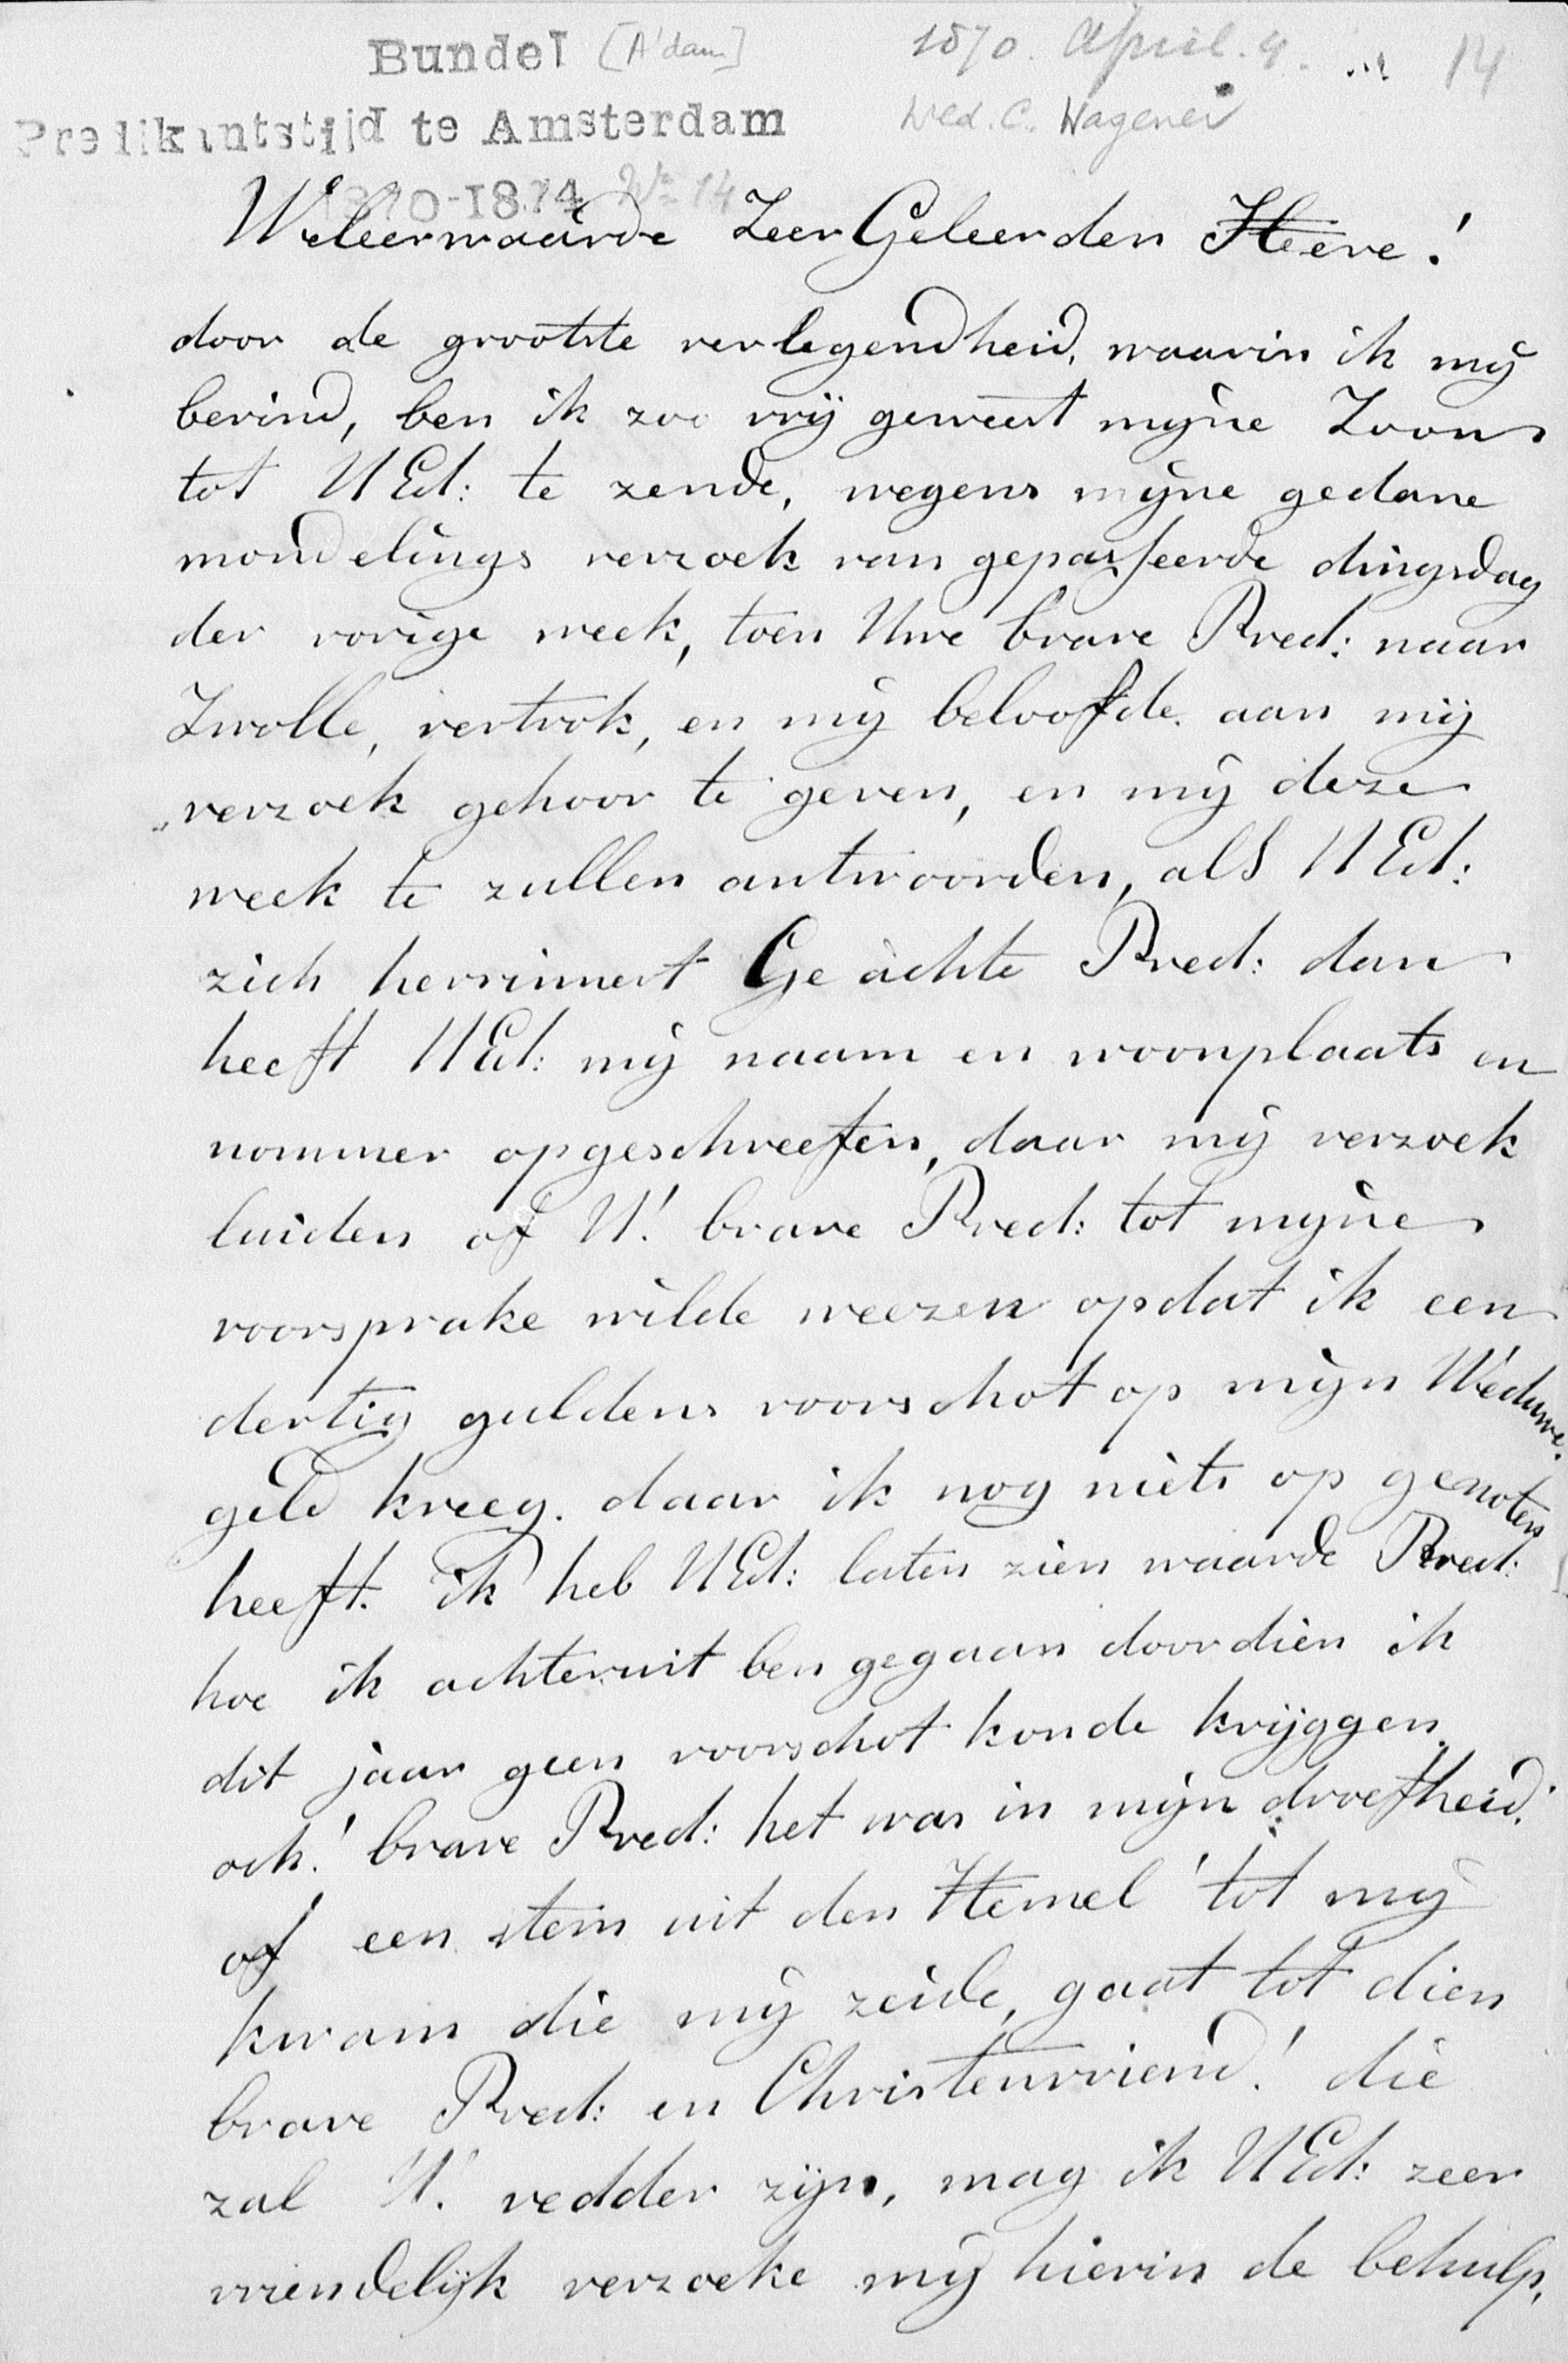 Bundel [A'dam]
1870. April. 9. 14
Predikantstijd te Amsterdam
Wed. C. Wagener
1870-1874 No 14
Weleerwaarde Zeer Geleerden Heere!
door de grootste verlegendheid, waarin ik mij
bevind, ben ik zoo vrij geweest mijne Zoon
tot UEd: te zende, wegens mijne gedane
mondelings verzoek van gepasseerde dingsdag
der vorige week, toen Uwe brave Pred: naar
Zwolle, vertrok, en mij beloofde aan mij
verzoek gehoor te geven, en mij deze
week te zullen antwoorden, als UEd:
zich herrinnert Geachte Pred: dan
heeft UEd: mij naam en woonplaats en
nommer opgeschreefen, daar mij verzoek
luiden of U! brave Pred: tot mijne
voorsprake wilde weezen opdat ik een
dertig guldens voorschot op mijn Weduwe.
geld kreeg. daar ik nog niets op genoten
heeft. ik heb UEd: laten zien waarde Pred:
hoe ik achteruit ben gegaan doordien ik
dit jaar geen voorschot konde krijggen.
och! brave Pred: het was in mijn droefheid.
of een stem uit den Hemel tot mij
kwam die mij zeide, gaat tot dien
brave Pred: en Christenvriend! die
zal U. redder zijn, mag ik UEd: zeer
vriendelijk verzoeke mij hierin de behulp,